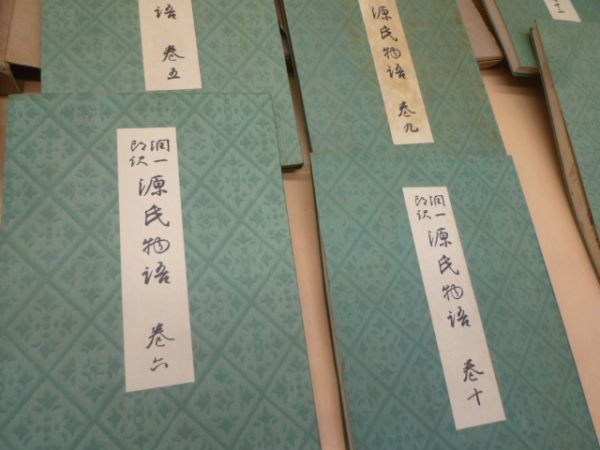 語 巻五
源氏物語 巻九
潤一
郎訳
源氏物語 巻六
潤一
郎訳
源氏物語 巻十